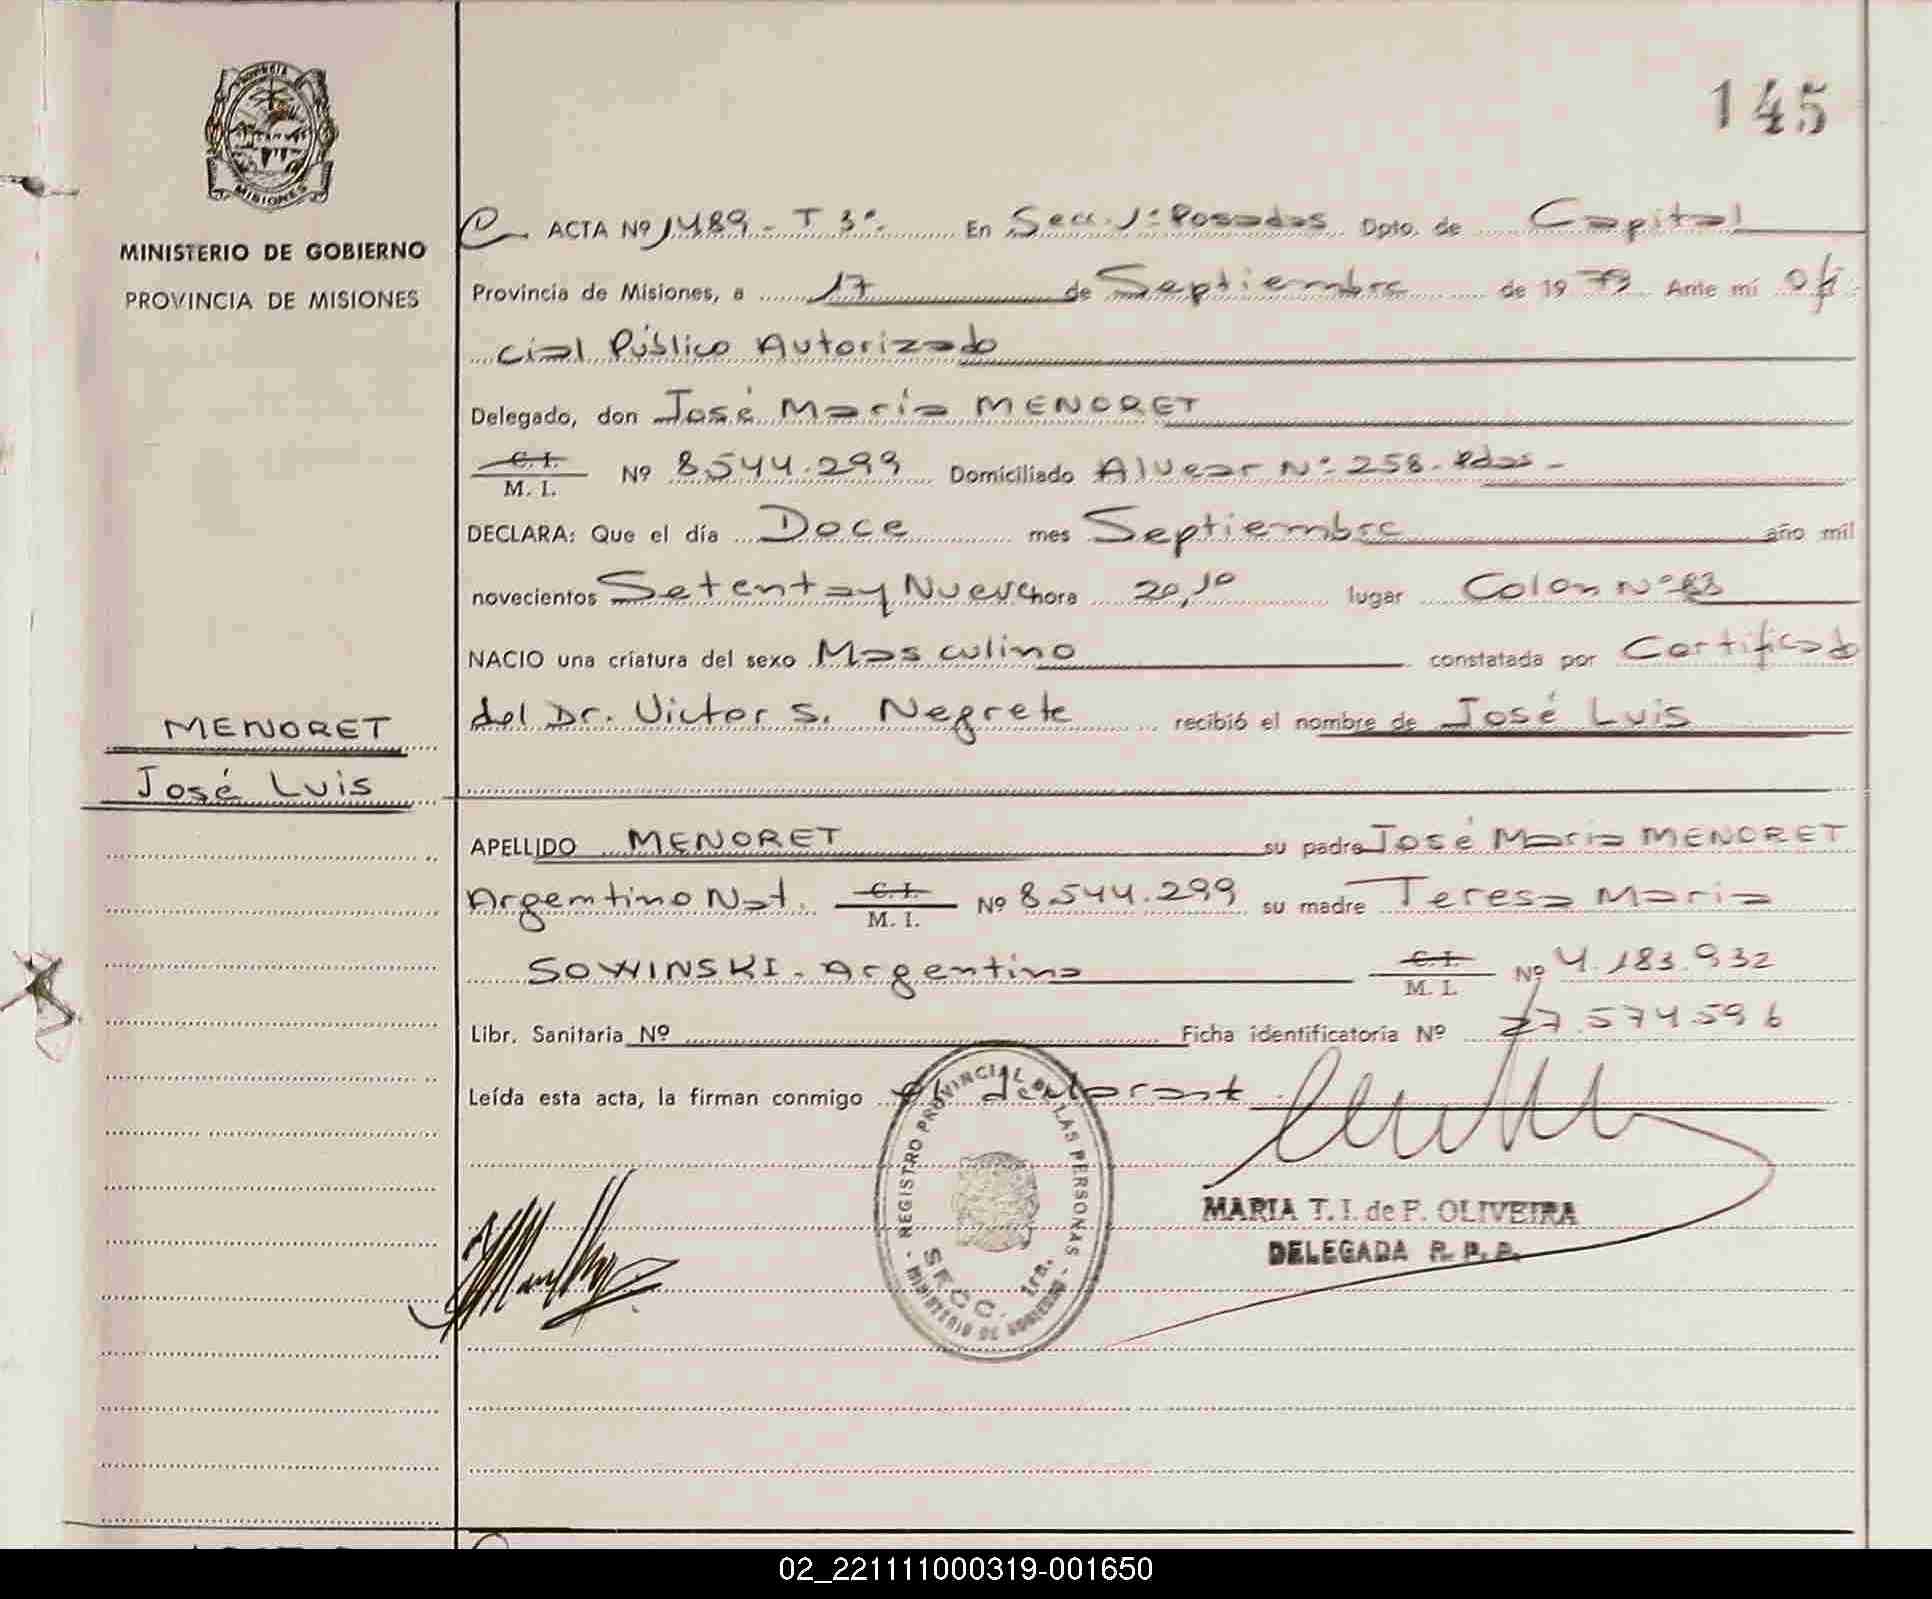 145
PROVINCIA
MISIONES
MINISTERIO DE GOBIERNO
PROVINCIA DE MISIONES
ACTA Nº 1489 - T 3º. En Secc. 1ª Posadas Dpto. de Capital
Provincia de Misiones, a 17 de Septiembre de 1979 Ante mí Ofi
cial Público Autorizado
Delegado, don José María MENORET
C. I.
M. I. Nº 8.544.299 Domiciliado Alvear Nº 258. Pdas -
DECLARA: Que el día Doce mes Septiembre año mil
novecientos Setenta y Nueve hora 20,10 lugar Colon Nº
NACIO una criatura del sexo Masculino constatada por Certificado
del Dr. Victor S. Negrete recibió el nombre de José Luis
MENORET
José Luis
APELLIDO MENORET su padre José Maria MENORET
Argentino Nat. C. I.
M. I. Nº 8.544.299 su madre Teresa Maria
SOWINSKI. Argentina C. I.
M. I. Nº 4.183.932
Libr. Sanitaria Nº Ficha identificatoria Nº 27.574.596
Leída esta acta, la firman conmigo el declarant
REGISTRO PROVINCIAL DE LAS PERSONAS
SECC. 1ra.
MINISTERIO DE GOBIERNO
MARIA T. I. de F. OLIVEIRA
DELEGADA R. P. P.
02_221111000319-001650